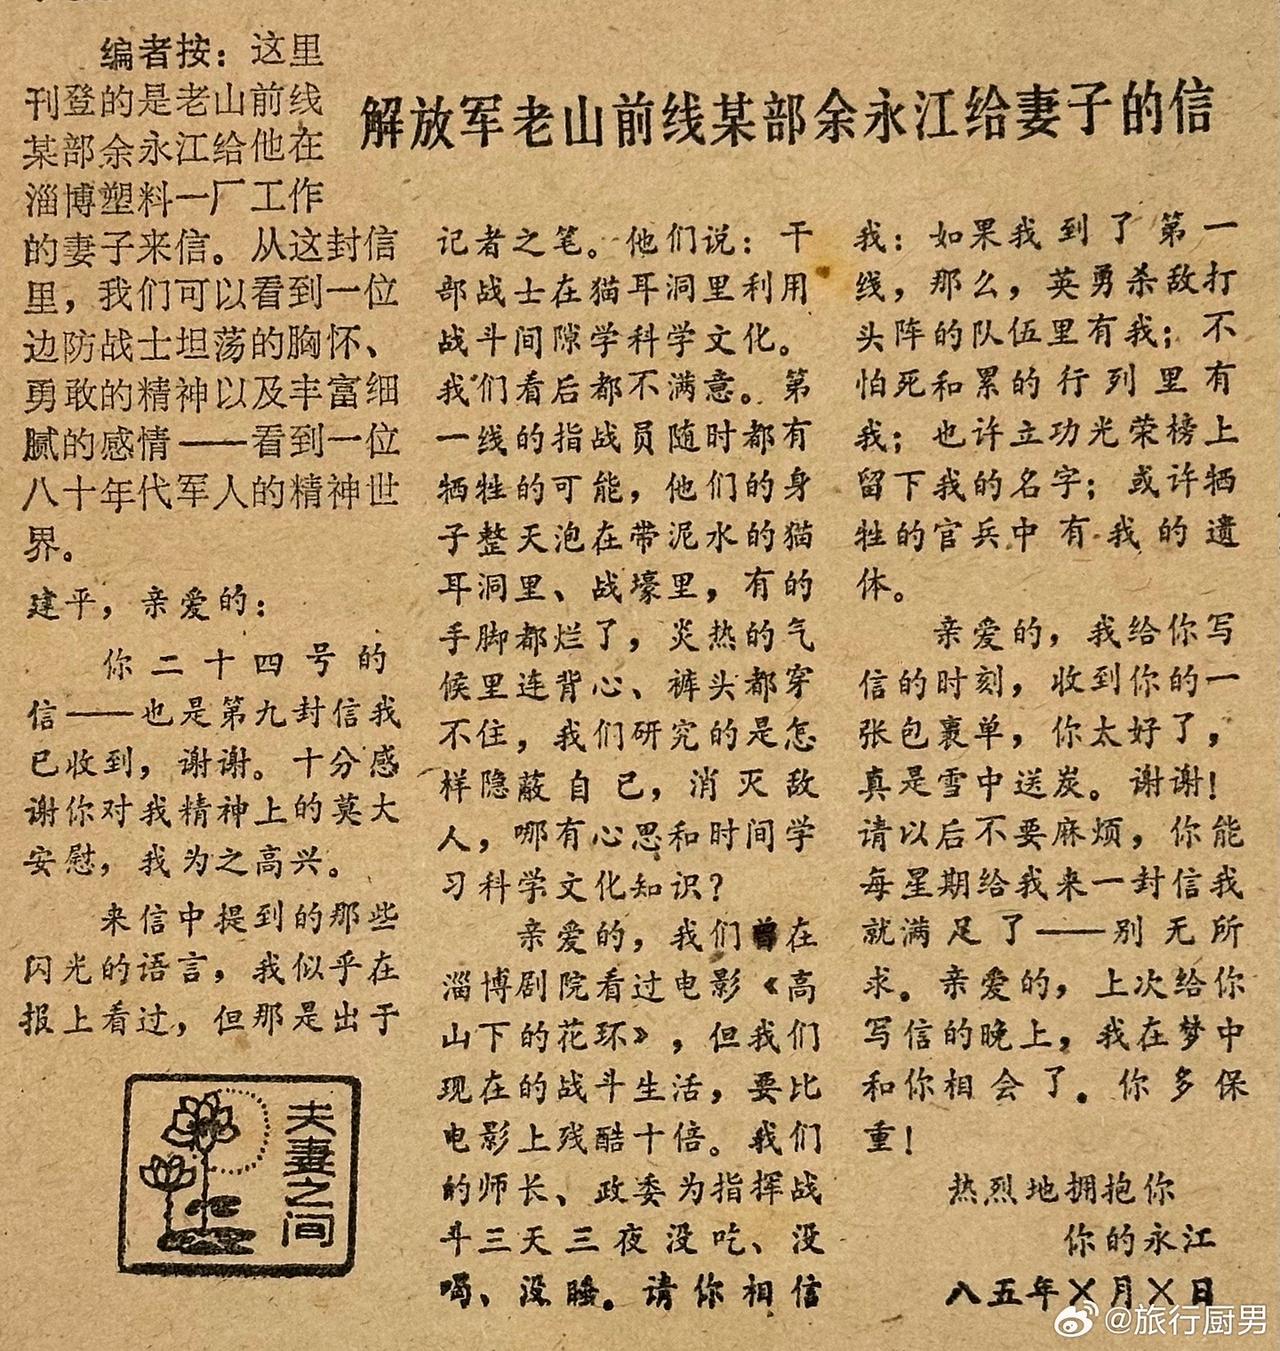 解放军老山前线某部余永江给妻子的信
编者按：这里
刊登的是老山前线
某部余永江给他在
淄博塑料一厂工作
的妻子来信。从这封信
里，我们可以看到一位
边防战士坦荡的胸怀、
勇敢的精神以及丰富细
腻的感情——看到一位
八十年代军人的精神世
界。
建平，亲爱的：
你二十四号的
信——也是第九封信我
已收到，谢谢。十分感
谢你对我精神上的莫大
安慰，我为之高兴。
来信中提到的那些
闪光的语言，我似乎在
报上看过，但那是出于
夫妻之间
记者之笔。他们说：干
部战士在猫耳洞里利用
战斗间隙学科学文化。
我们看后都不满意。第
一线的指战员随时都有
牺牲的可能，他们的身
子整天泡在带泥水的猫
耳洞里、战壕里，有的
手脚都烂了，炎热的气
候里连背心、裤头都穿
不住，我们研究的是怎
样隐蔽自已，消灭敌
人，哪有心思和时间学
习科学文化知识？
亲爱的，我们曾在
淄博剧院看过电影《高
山下的花环》，但我们
现在的战斗生活，要比
电影上残酷十倍。我们
的师长、政委为指挥战
斗三天三夜没吃、没
喝、没睡。请你相信
我：如果我到了第一
线，那么，英勇杀敌打
头阵的队伍里有我；不
怕死和累的行列里有
我；也许立功光荣榜上
留下我的名字；或许牺
牲的官兵中有我的遗
体。
亲爱的，我给你写
信的时刻，收到你的一
张包裹单，你太好了，
真是雪中送炭。谢谢！
请以后不要麻烦，你能
每星期给我来一封信我
就满足了——别无所
求。亲爱的，上次给你
写信的晚上，我在梦中
和你相会了。你多保
重！
热烈地拥抱你
你的永江
八五年×月×日
@旅行厨男